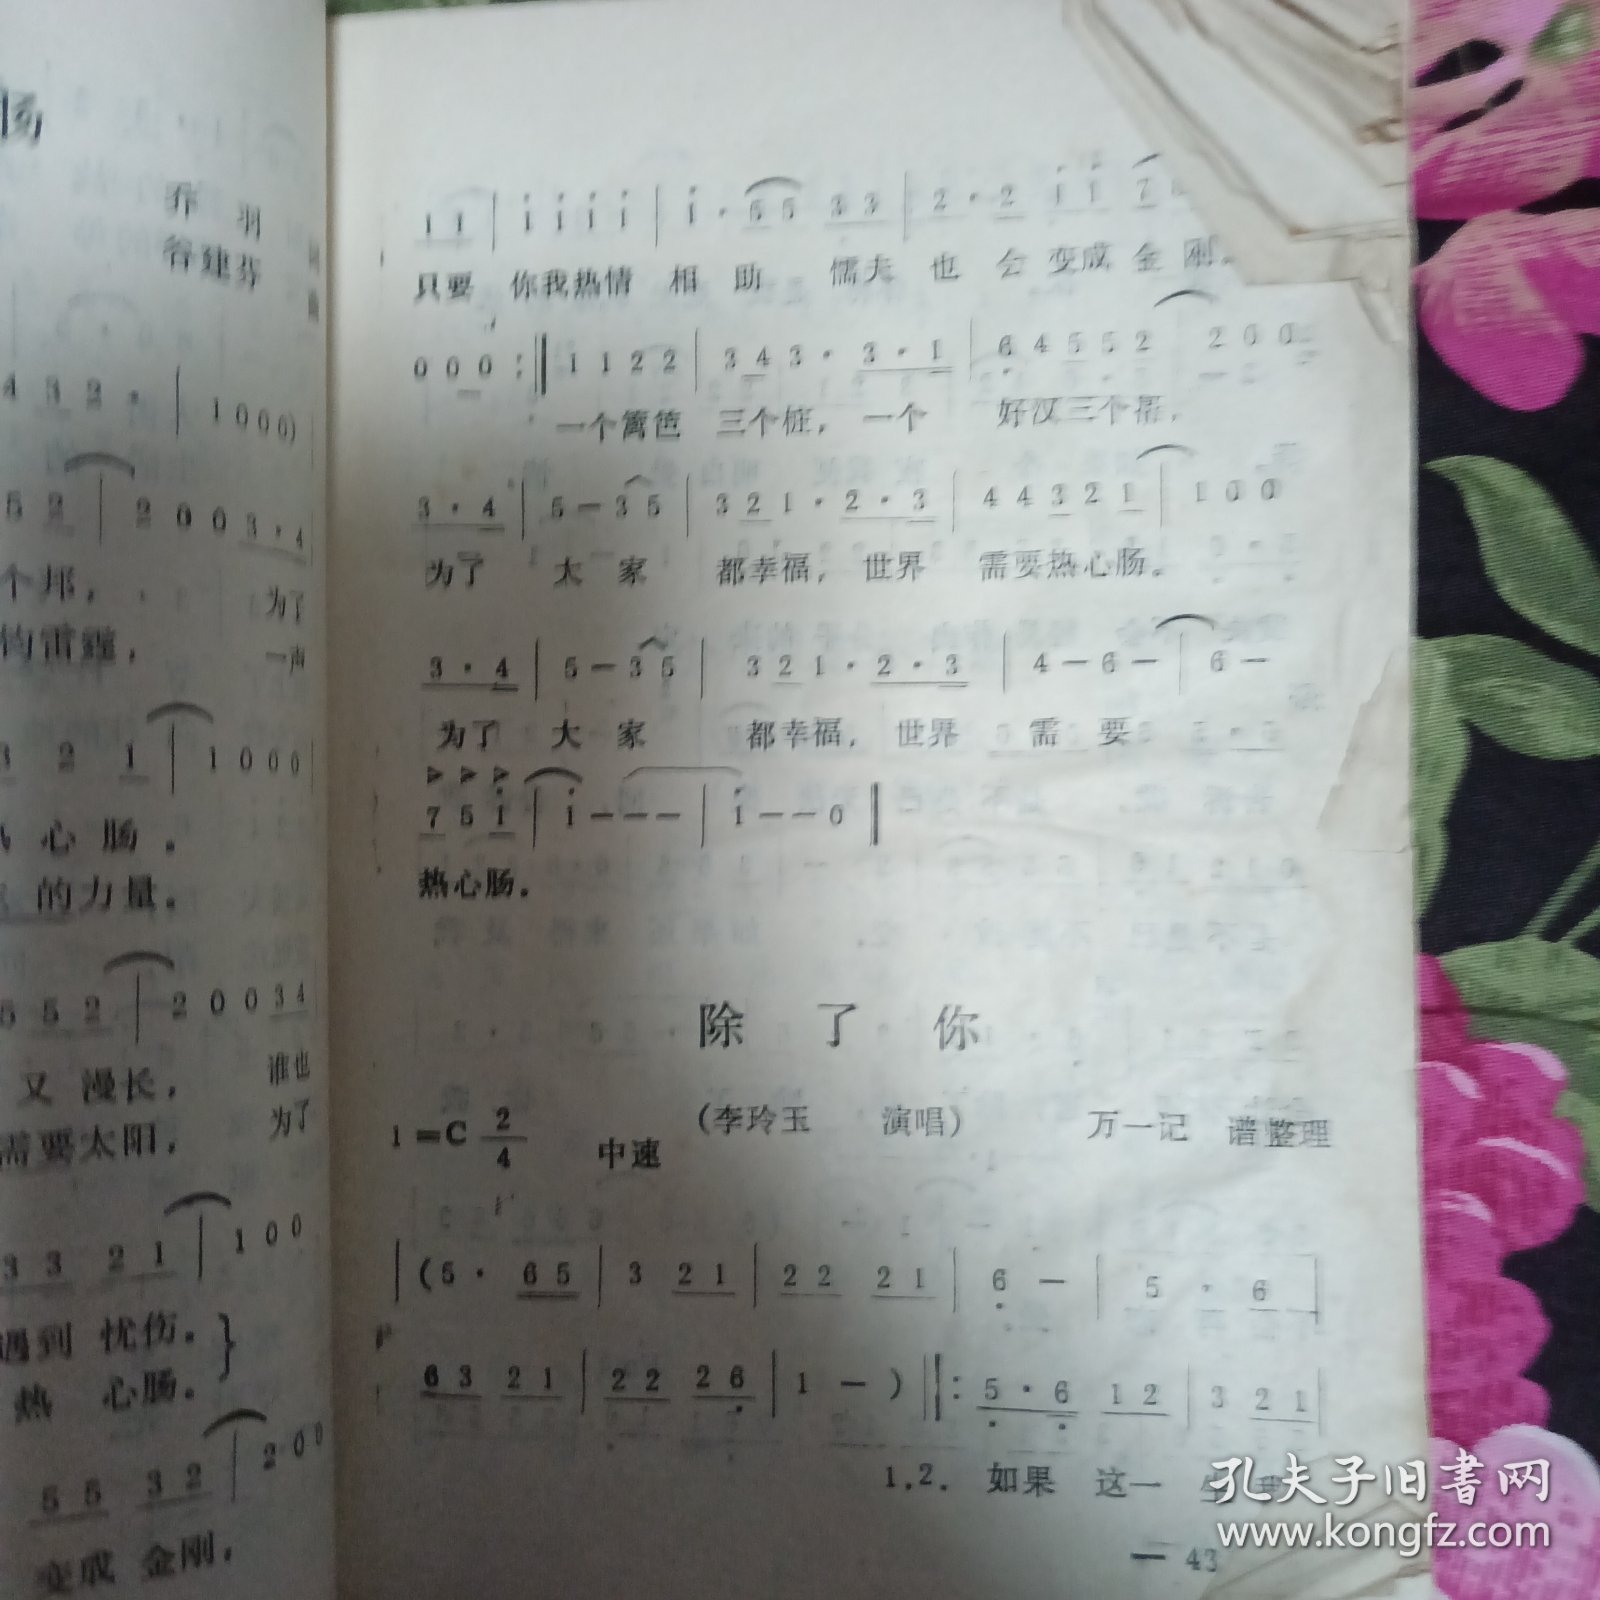 肠
乔 羽
谷建芬
4 3 2 · | 1 0 0 0)
5 2 | 2 0 0 3 · 4
个邦， 为了
钧雷霆， 一声
2 1 | 1 0 0 0
心肠．
的力量．
5 5 2 | 2 0 0 3 4
又漫长， 谁也
需要太阳， 为了
3 3 2 1 | 1 0 0
遇到 忧伤．
热 心肠．
5 5 3 2 | 2 0 0
变成 金刚，
1 1 | i i i i | i · 5 5 3 3 | 2 · 2 i i 7
只要 你我热情 相 助 懦夫 也 会 变成 金 刚．
0 0 0 :‖ 1 1 2 2 | 3 4 3 · 3 · 1 | 6 4 5 5 2 | 2 0 0
一个篱笆 三个桩， 一个 好汉三个帮，
3 · 4 | 5 — 3 5 | 3 2 1 · 2 · 3 | 4 4 3 2 1 | 1 0 0
为了 大 家 都幸福， 世界 需要热心肠．
3 · 4 | 5 — 3 5 | 3 2 1 · 2 · 3 | 4 — 6 — | 6 —
为了 大 家 都幸福， 世界 需 要
7 5 i | i — — — | i — — 0 ‖
热心肠．
除 了 你
1=C 2/4 中速 （李玲玉 演唱） 万一记 谱整理
| (5 · 6 5 | 3 2 1 | 2 2 2 1 | 6 — | 5 · 6 |
6 3 2 1 | 2 2 2 6 | 1 — ) ‖: 5 · 6 1 2 | 3 2 1 |
1.2. 如果 这一
— 43
孔夫子旧书网
www.kongfz.com